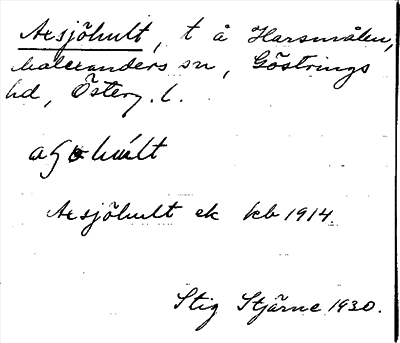 Axsjöhult, t å Harsmålen,
Malexanders sn, Göstrings
hd, Österg. l.
Axsjöhult ek kb 1914.
Stig Stjärne 1930.